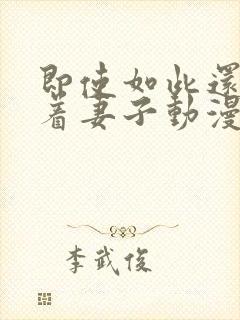 即使如此還
着妻子動漫
李武俊